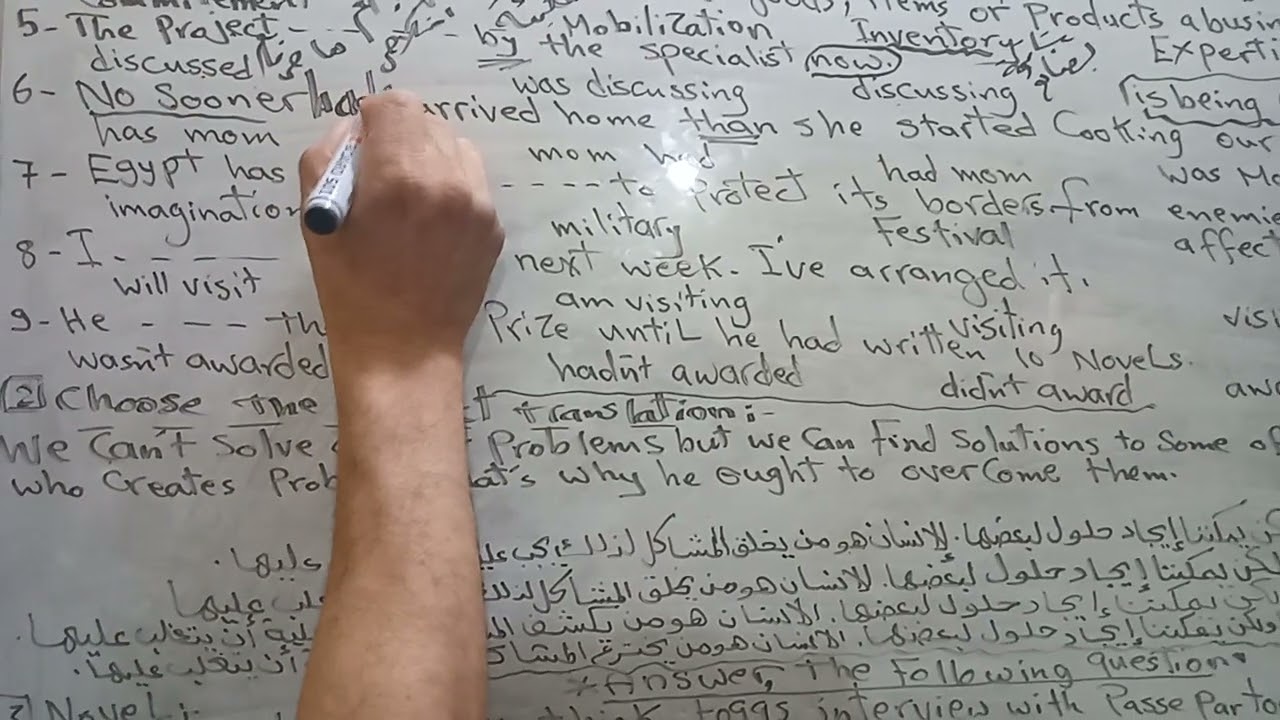 Items or Products abusin
5- The Project - - - by the Mobilization Inventory Experti
discussed by the specialist now.
was discussing discussing is being
6- No sooner had arrived home than she started cooking our
has mom mom had had mom was Mo
7- Egypt has - - - - to protect its borders from enemie
imagination military Festival affect
8- I - - - next week. I've arranged it.
will visit am visiting visiting visi
9- He - - - th Prize until he had written 10 Novels.
wasn't awarded hadn't awarded didn't award awa
[2] Choose the translation:-
We can't solve Problems but we can find solutions to some of
who creates Prob at's why he ought to overcome them.
يمكننا إيجاد حلول لبعضها. الإنسان هو من يخلق المشاكل لذلك يجب عليها.
لكن يمكننا إيجاد حلول لبعضها. الإنسان هو من يخلق المشاكل لذلك عليها
يمكننا إيجاد حلول لبعضها. الإنسان هو من يكتشف أن يتغلب عليها.
ولكن يمكننا إيجاد حلول لبعضها. الإنسان هو من يخترع المشاكل أن يتغلب عليها.
* Answer The following question.
Novel:- think Foggs interview with Passeparto